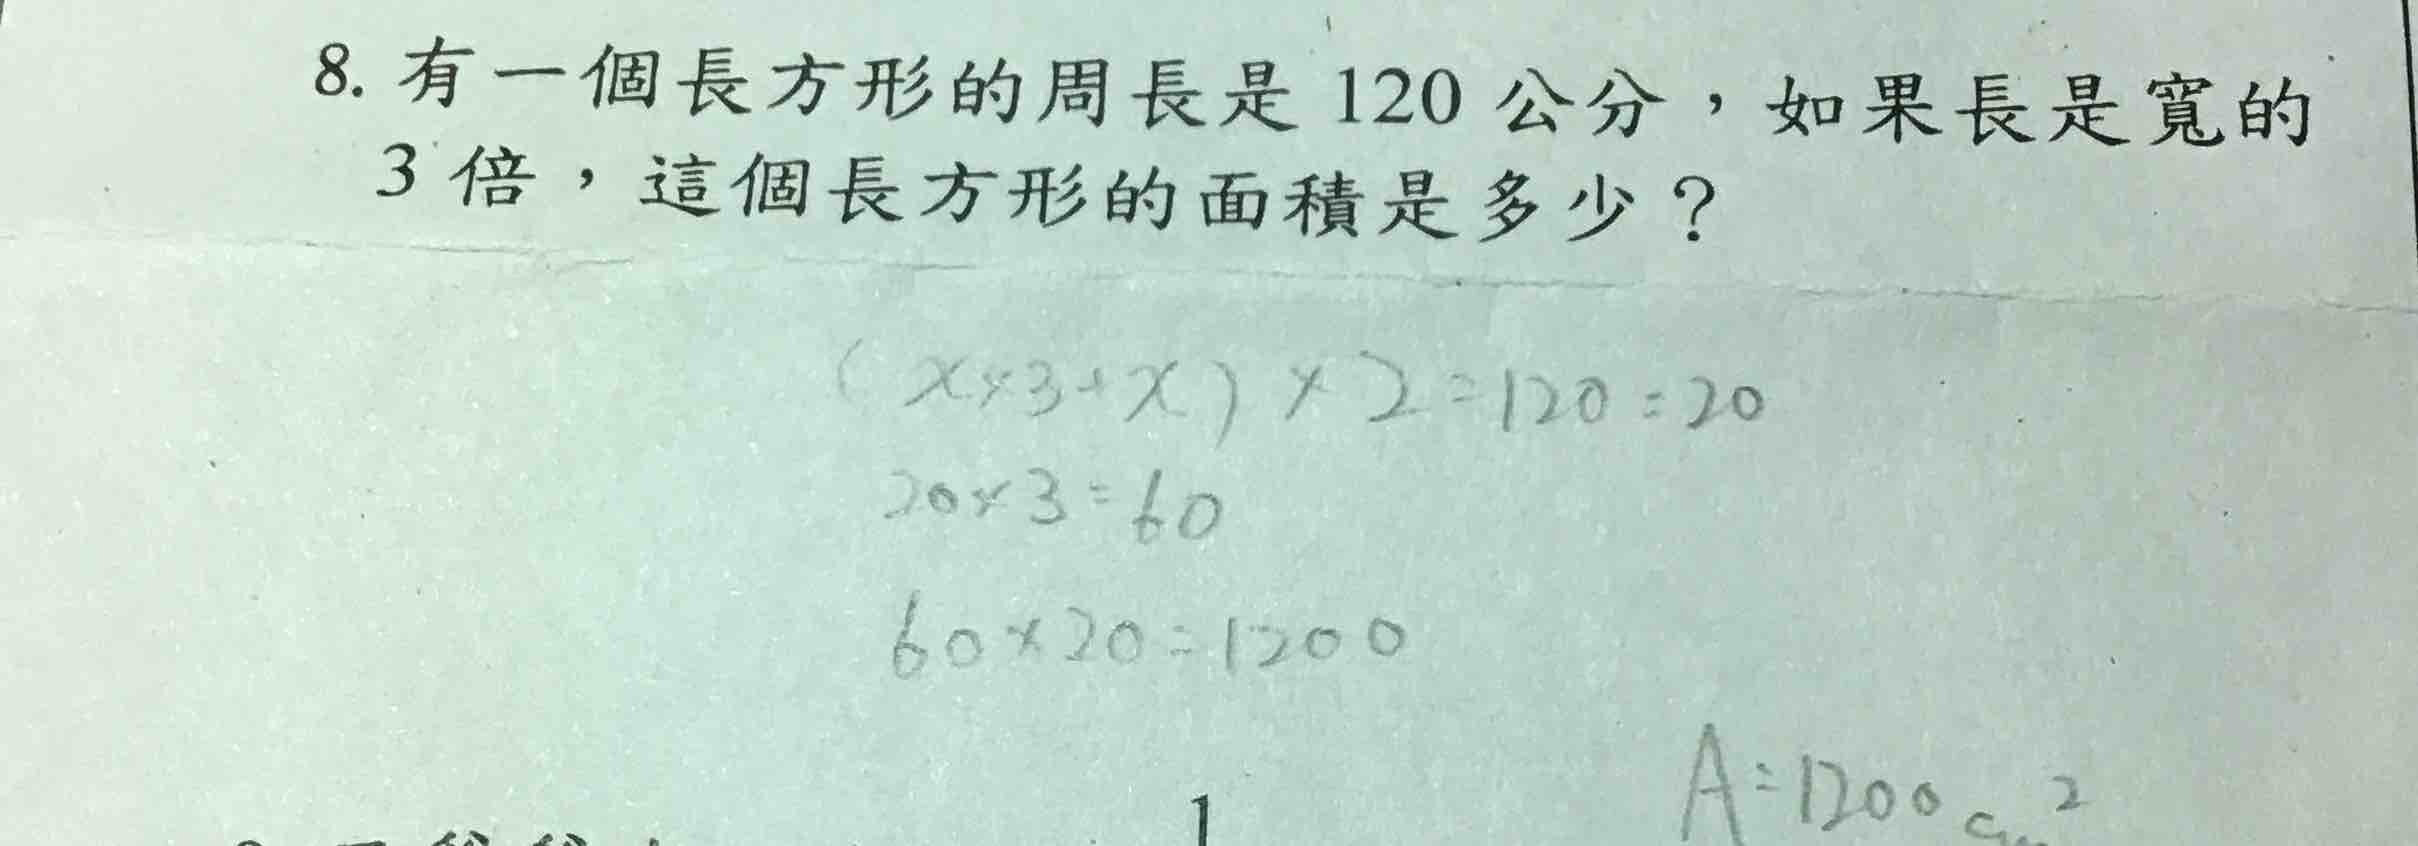 8. 有一個長方形的周長是 120 公分，如果長是寬的
3 倍，這個長方形的面積是多少？
(x×3+x)×2=120=20
20×3=60
60×20=1200
A=1200 cm²
1